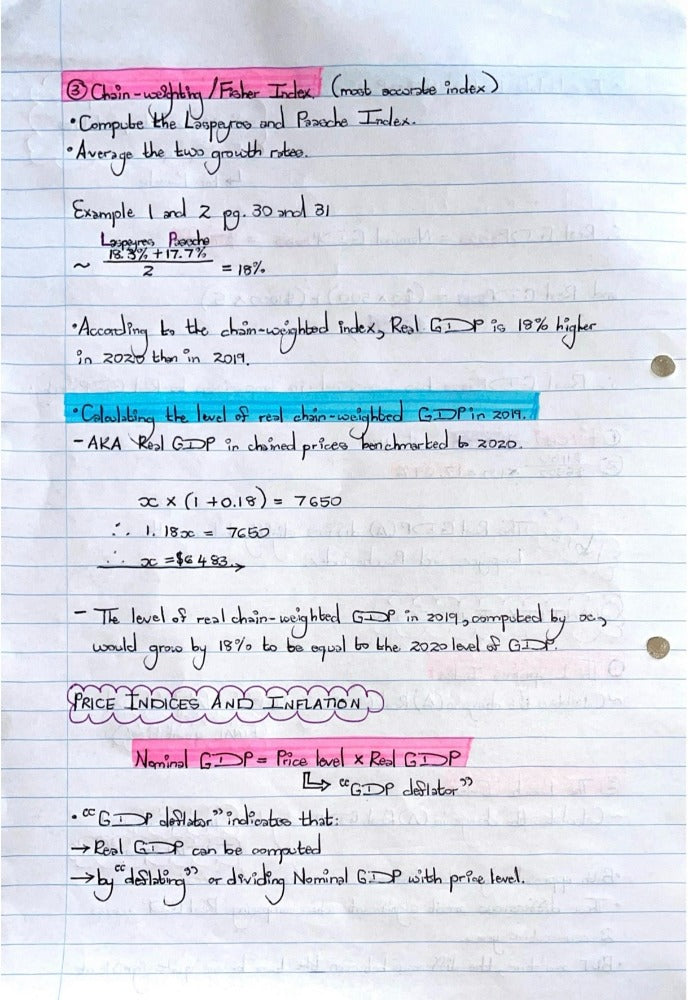 ③ Chain-weighting / Fisher Index (most accurate index)
• Compute the Laspeyres and Paasche Index.
• Average the two growth rates.
Example 1 and 2 pg. 30 and 31
Laspeyres Paasche
~ 18.3% + 17.7% / 2 = 18%
• According to the chain-weighted index, Real GDP is 18% higher
in 2020 than in 2019.
• Calculating the level of real chain-weighted GDP in 2019.
- AKA Real GDP in chained prices benchmarked to 2020.
x × (1 + 0.18) = 7650
∴ 1.18x = 7650
∴ x = $6483
- The level of real chain-weighted GDP in 2019, computed by x,
would grow by 18% to be equal to the 2020 level of GDP.
PRICE INDICES AND INFLATION
Nominal GDP = Price level × Real GDP
↳ "GDP deflator"
• "GDP deflator" indicates that:
→ Real GDP can be computed
→ by "deflating" or dividing Nominal GDP with price level.